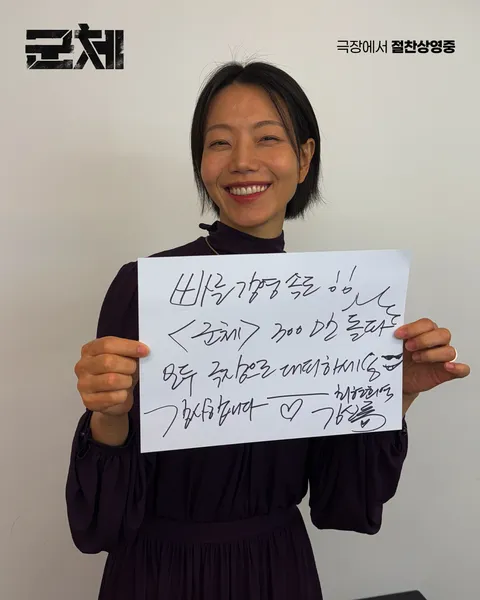 군체
극장에서 절찬상영중
빠른 감염 속도 !!
<군체> 300만 돌파
모두 극장으로 대피하세요
감사합니다 ♡
최현희 역
김신록